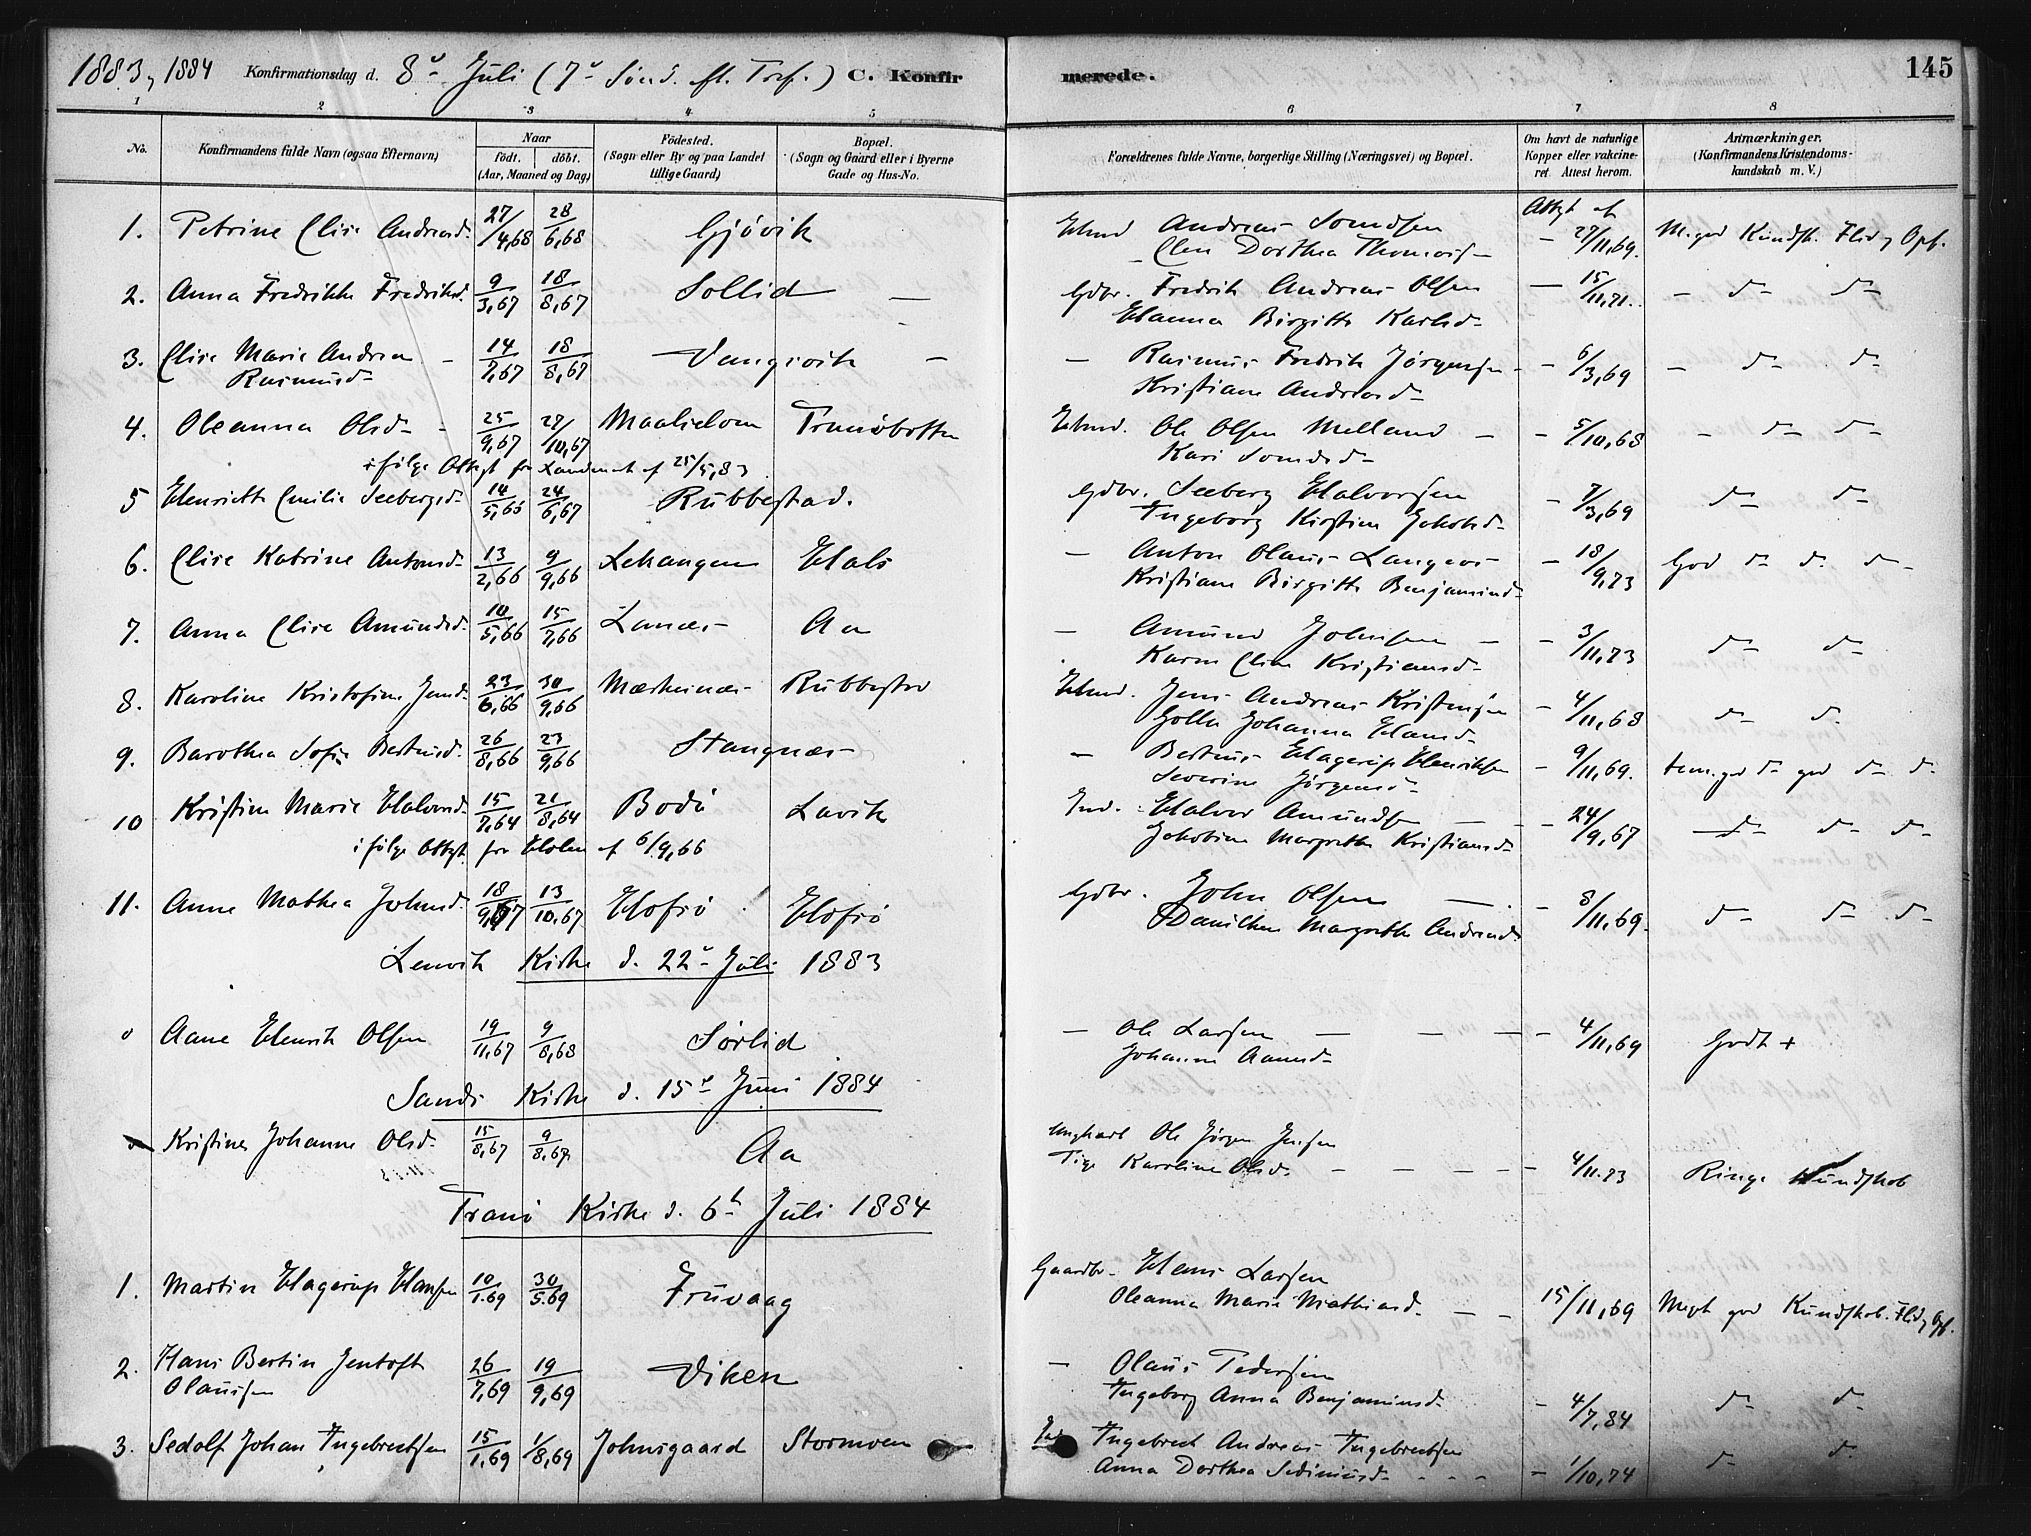 1883, 1884 Konfirmationsdag d. 8de Juli (7de Sønd. eft. Tref.) C. Konfirmerede. 145
1 2 3 4 5 6 7 8
No. Konfirmandens fulde Navn (ogsaa Efternavn) Naar født. døbt. (Aar, Maaned og Dag) Födested. (Sogn eller By og paa Landet tillige Gaard) Bopæl. (Sogn og Gaard eller i Byerne Gade og Hus-No. Forældrenes fulde Navne, borgerlige Stilling (Næringsvei) og Bopæl. Om havt de naturlige Kopper eller vakcineret. Attest herom. Anmærkninger. (Konfirmandens Kristendomskundskab m. V.)
1. Petrine Elise Andreasd. 27/4,68 28/6,68 Gjövik Hmd Andreas Somdsen Attest af
Elen Dorthea Thomasd - 27/11,69. M. god Kundsk. Flid og Opf.
2. Anna Fredrikke Fredriksd. 9/3,67 18/8,67 Sollid — Gdbr. Fredrik Andreas Olsen — 15/11,71. - d- d-
Hanna Birgitte Karlsd-
3. Elise Marie Andrea - 14/7,67 18/8,67 Vangsvik — - Rasmus Fredrik Jørgensen - 6/3,69 - d- d-
Rasmusd- Kristiane Andreasd-
4. Oleanna Olsd- 25/9,67 27/10,67 Maalselven Tranöbotten Hmd. Ole Olsen Melland - - 5/10,68 - d- d-
ifølge Attest fra af 25/5,83 Kari Somdsd-
5 Henriette Emilie Seebergsd- 14/5,66 24/6,67 Rubbestad. Gdbr. Seeberg Halvorsen - 7/3,69 d- d-
Ingeborg Kirstine Jakobsd-
6. Elise Katrine Antonsd- 13/2,66 9/9,66 Lekangen Hals - Anton Olaus Langaas - 18/9,73 God d- d- d-
Kristiane Birgitte Benjaminsd-
7. Anna Elise Amundsd- 10/5,66 15/7,66 Lanæs- Aa - Amund Johnsen - - 3/11,73 d- d-
Karen Elise Kristiansd-
8. Karoline Kristofine Jensd- 23/6,66 30/9,66 Rubbestad Hmd. Jens Andreas Kristensen - 4/11,68 d- d-
Johanna Hansd-
9. Barothea Sofie Bertheusd- 26/8,66 23/9,66 Stangnæs- - Bertheus Hagerup Henriksen - 9/11,69. god d- god d- d-
Severine Jørgensd-
10 Kristine Marie Halvorsd- 15/7,64 21/8,64 Bodö Lavik Ind. Halvor Amundsen - - 24/9,67 d- d- d-
ifølge Attest fra af 6/9,66 Jakobine Margrethe Kristiansd-
11. Anne Mathea Johnsd. 18/9,67 13/10,67 Hofsö Hofsö Gdbr. John Olsen - 8/11,69. d- d- d-
Danilken Margrethe Andreasd-
Lenvik Kirke d. 22de Juli 1883
0 Aane Henrik Olsen 19/11,67 9/8,68 Sørlid - Ole Larsen - - - - 4/11,69 Godt +
Johanna Aanesd-
Sands Kirke d. 15de Juni 1884
Kristine Johanne Olsd. 15/8,67 9/8.67. Aa Ungkarl Ole Jørgen Jensen
Pige Karoline Olsd. - - - - - 4/11.73 Ringe Kundskab
Tranö Kirke d. 6te Juli 1884
1. Martin Hagerup Hansen 10/1.69 30/5.69 Fruvaag Gaardbr. Hans Larsen
Oleanna Marie Mathiasd. - - 15/11,69 Meget god Kundskab. Flid og Opf.
2. Hans Bertin Jentoft 26/7,69 19/9,69 Viken - Olaus Pedersen
Olaussen Ingeborg Anna Benjaminsd- - 4/7,84 d- d-
3. Sedolf Johan Ingebrectsen 15/1.69 1/8,69 Johnsgaard Stormoen Ind Ingebrect Andreas Ingebrectsen
Anna Dorthea - - - - 1/10,74 d- d-